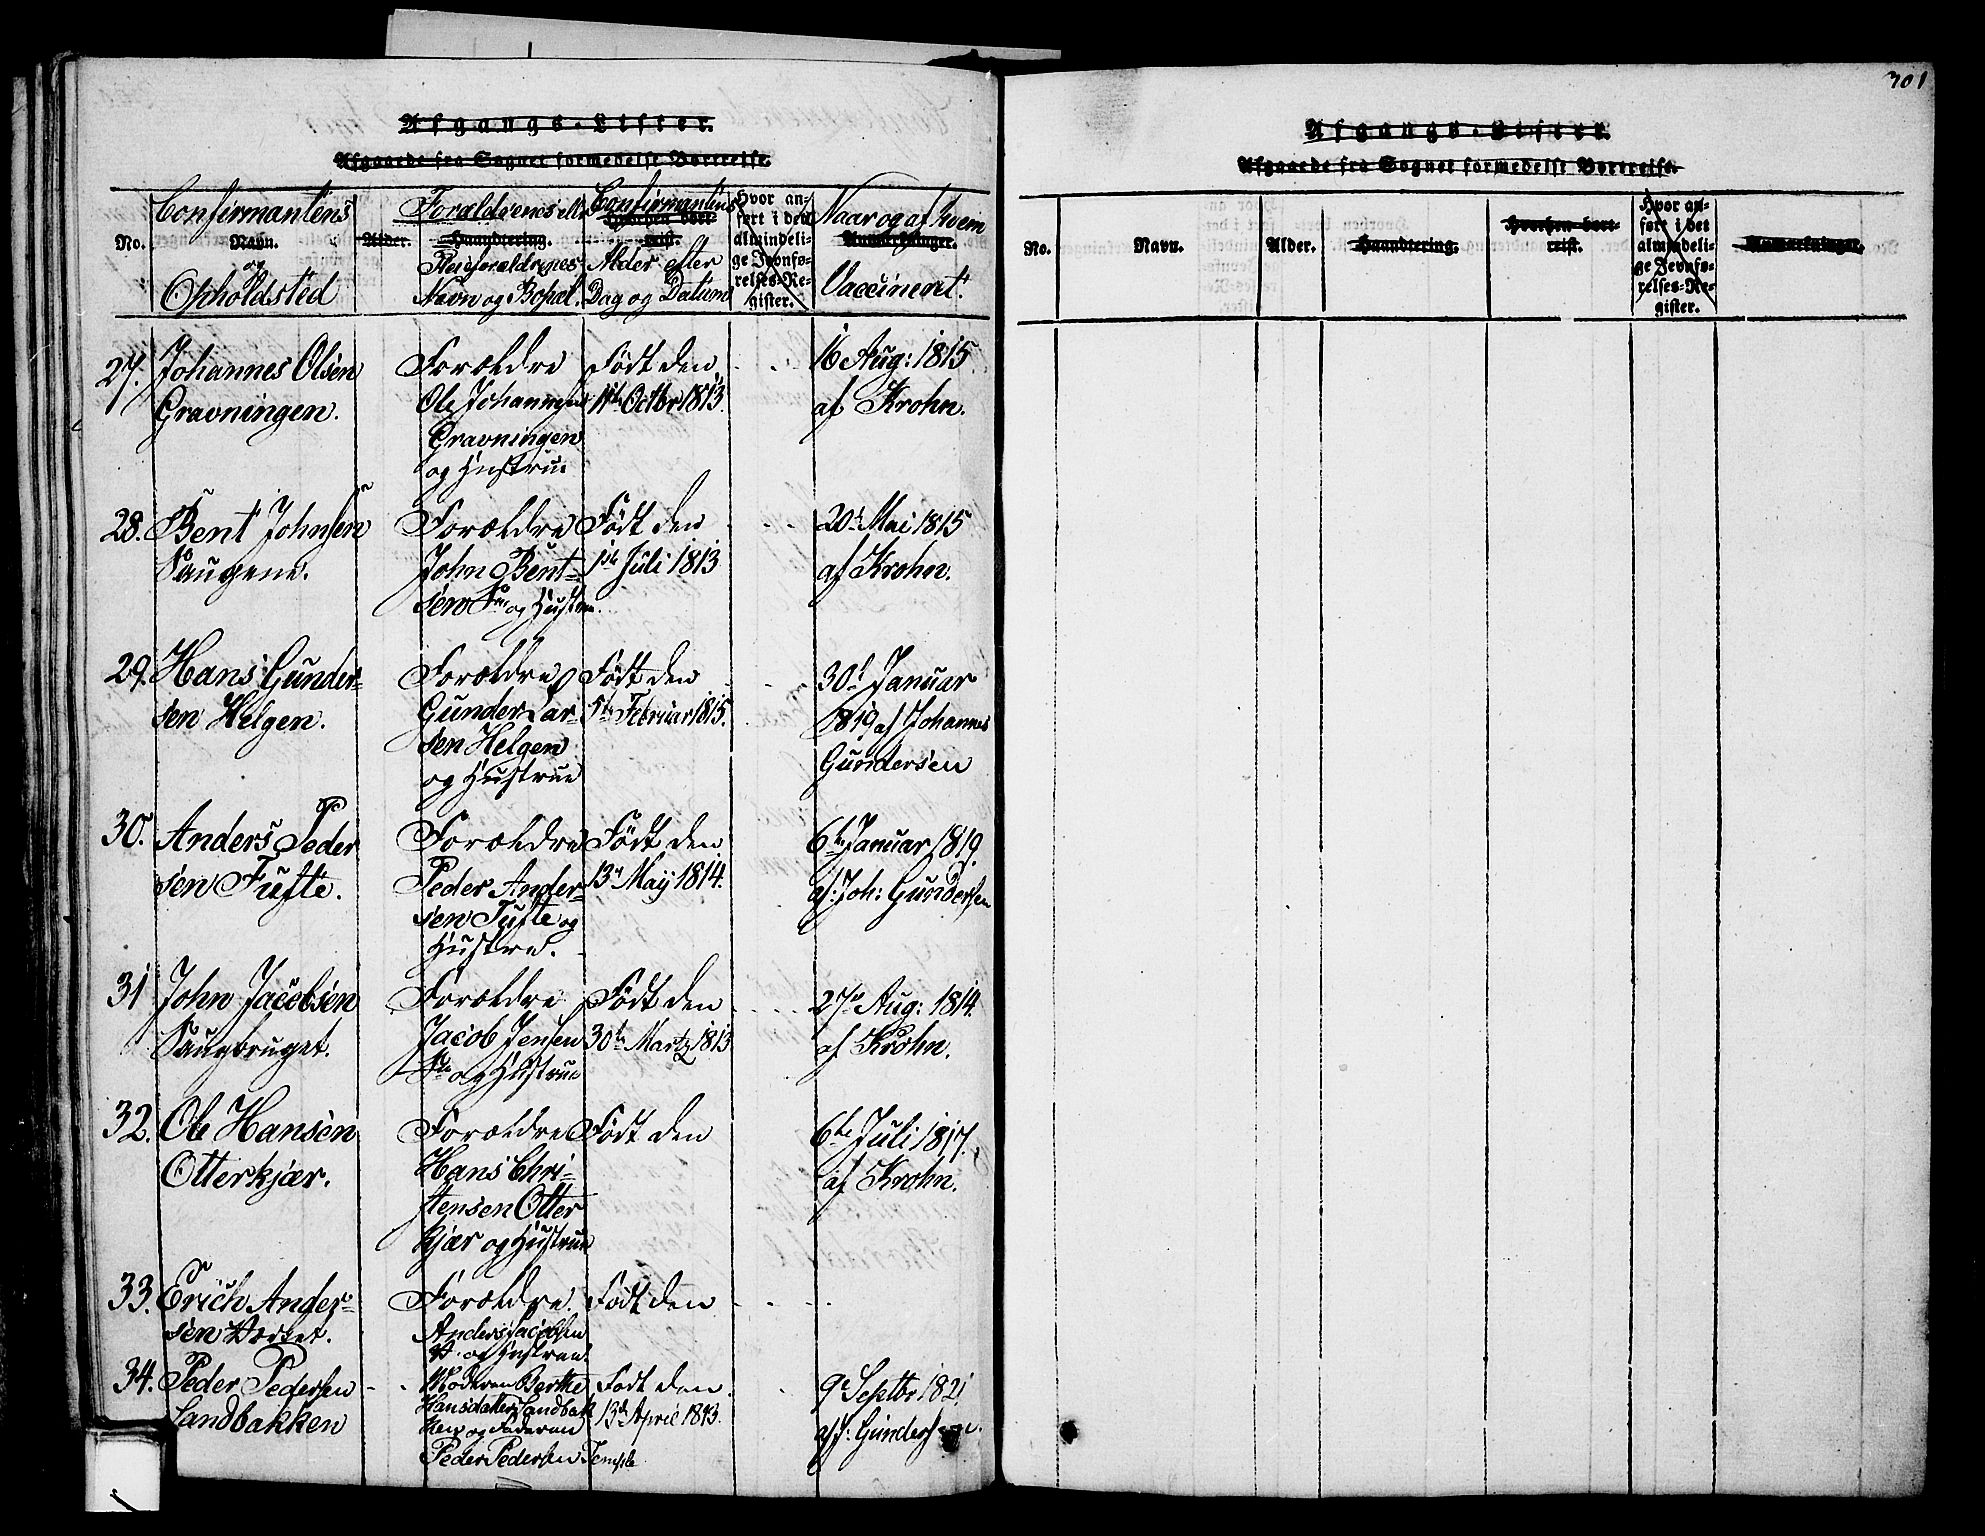 Afgangs-Lister.
Afgaaede fra Sognet formedelst Bortreise.
No.
Confirmantens
Navn.
og
Opholdsted
Alder.
Forældrenes ell.
Haandtering.
Pleieforældrenes
Navn og Bopæl.
Confirmantens
Hvorhen bort-
reist.
Alder efter
Dag og Datum
Hvor an-
ført i det
almindeli-
ge Jevnfø-
relses-Re-
gister.
Naar og af hvem
Anmærkninger.
Vaccineret.
27. Johannes Olsen
Gravningen.
Forældre
Ole Johannesen
Gravningen
og Hustrue
Født den
11te Octbr 1813.
16 Aug: 1815
af Krohn.
28. Bent Johnsen
Saugene.
Forældre
John Bent-
sen S. og Hustrue.
Født den
1ste Juli 1813
20d Mai 1815
af Krohn.
29. Hans Gunder-
sen Helgen.
Forældre
Gunder Lar-
sen Helgen
og Hustrue
Født den
5te Februar 1815.
30d Januar
1819 af Johannes
Gundersen
30. Anders Peder
sen Tufte.
Forældre
Peder Ander-
sen Tufte og
Hustrue.
Født den
13d May 1814.
6te Januar 1819.
af: Joh: Gundersen
31 John Jacobsen
Saugbruget.
Forældre
Jacob Jensen
og Hustrue
Født den
30te Martz 1813
27de Aug: 1814.
af Krohn.
32. Ole Hansen
Otterkjær.
Forældre
Hans Chri-
stensen Otter
kjær og Hustrue
Født den
6te Juli 1817.
af Krohn.
33. Erich Ander-
sen Værket.
Forældre.
Anders Jacobsen
V. og Hustrue.
Født den
34. Peder Pedersen
Sandbakken
Moderen Berthe
Hansdatter Sandbak
ken og Faderen
Peder Pedersen Temple
Født den
13de April 1813.
9e Septbr 1821
af J: Gundersen.
301
Afgangs-Lister.
Afgaaede fra Sognet formedelst Bortreise.
No.
Navn.
Alder.
Haandtering.
Hvorhen bort-
reist.
Hvor an-
ført i det
almindeli-
ge Jevnfø-
relses-Re-
gister.
Anmærkninger.